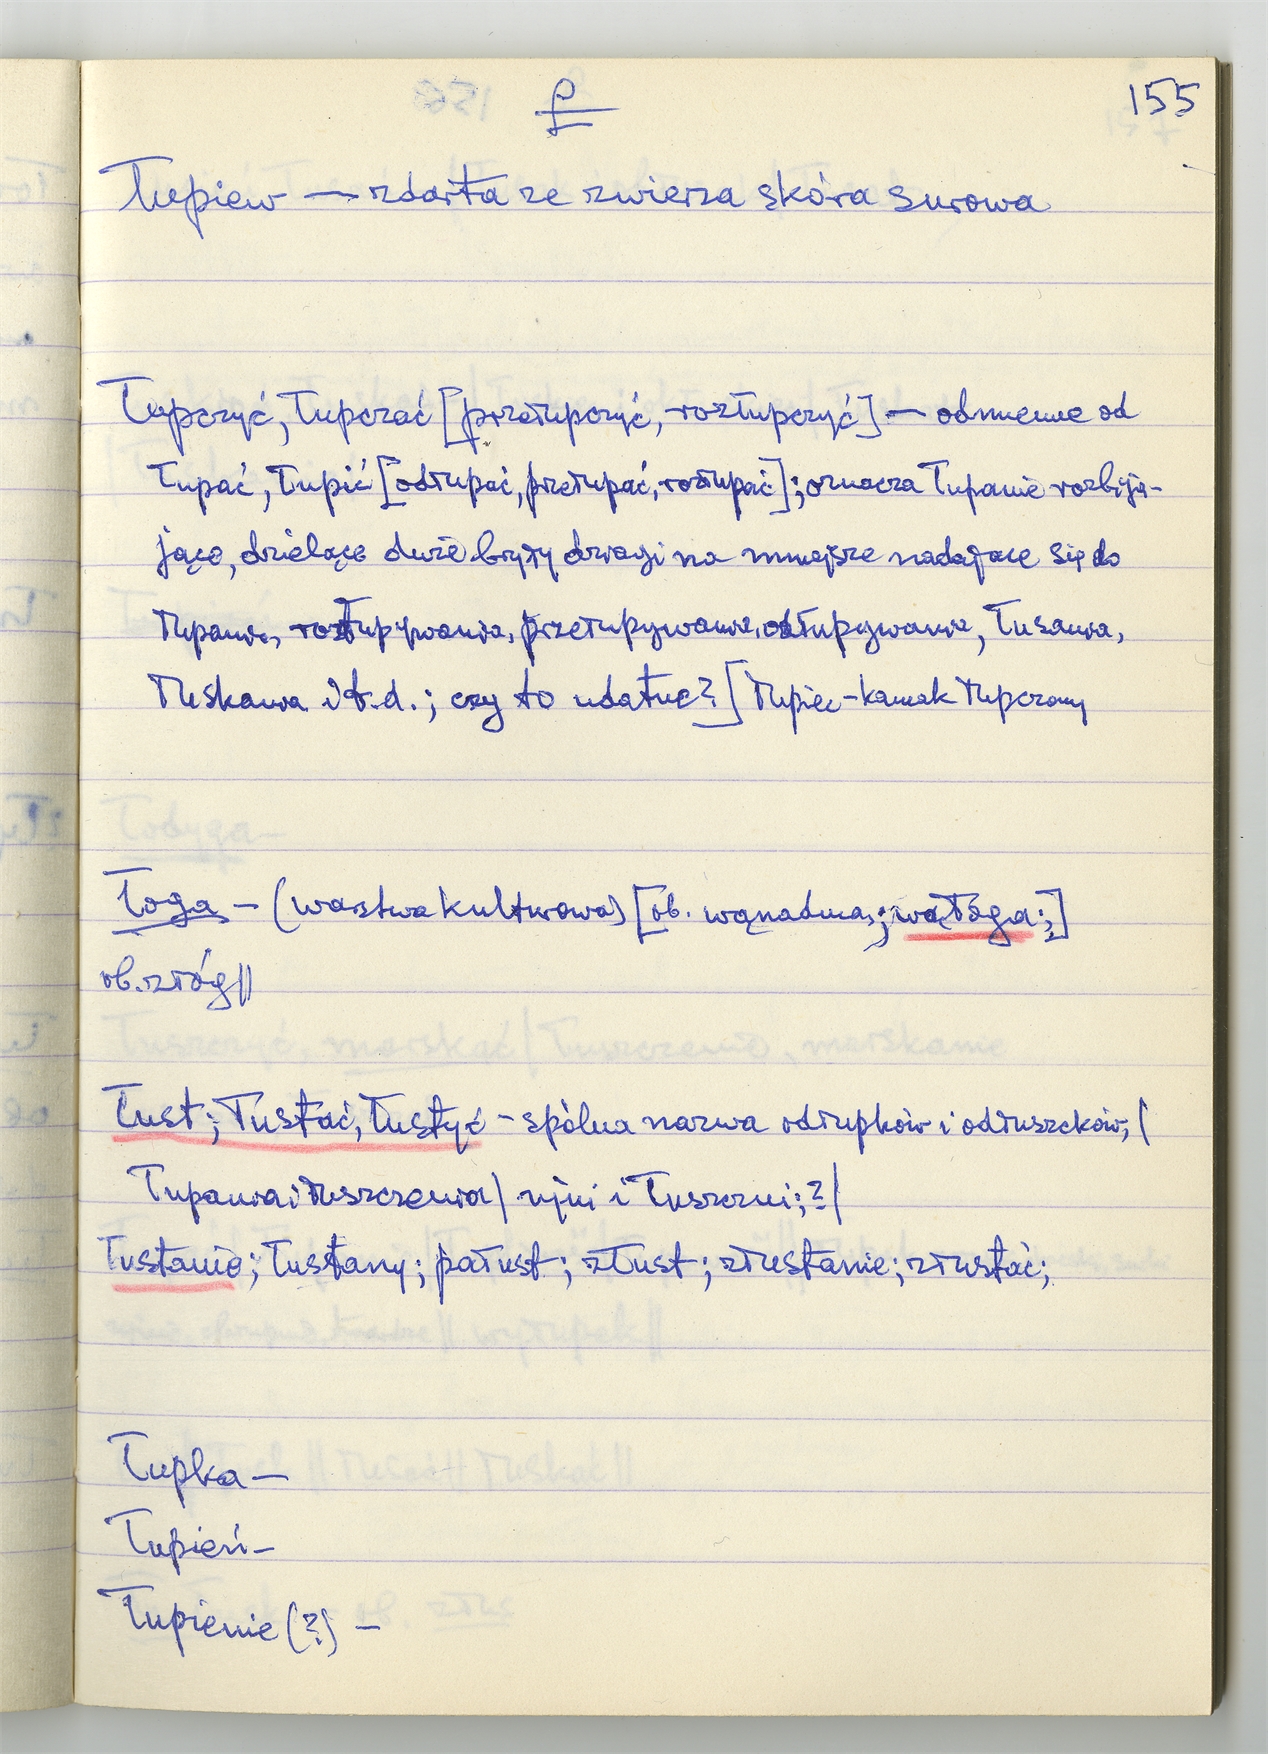 Ł
155
Łupiew — zdarta ze zwierza skóra surowa
Łupczyć, łupczać [przełupczyć, rozłupczyć] — odmienne od
łupać, łupić [odłupać, przełupać, rozłupać]; oznacza łupanie rozbija-
jące, dzielące duże bryły drzazgi na mniejsze nadające się do
łupania, rozłupywania, przełupywania, odłupywania, łusania,
łuskania i t.d.; czy to udatne?] łupiec - kamak łupczony
Łoga - (warstwa kulturowa) [ob. wąnadma; wąłoga;]
ob. złóg ||
Łust; łustać, łustyć - spólna nazwa odłupków i odłuszcków, (
łupania i łuszczenia) njni i łuszczni; ? /
Łustanie; łustany; pałust; złust; złustanie; złustać;
Łupka —
Łupień -
Łupienie (?) -